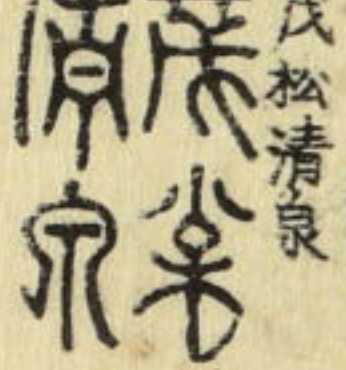 茂松清泉
茂松
清泉